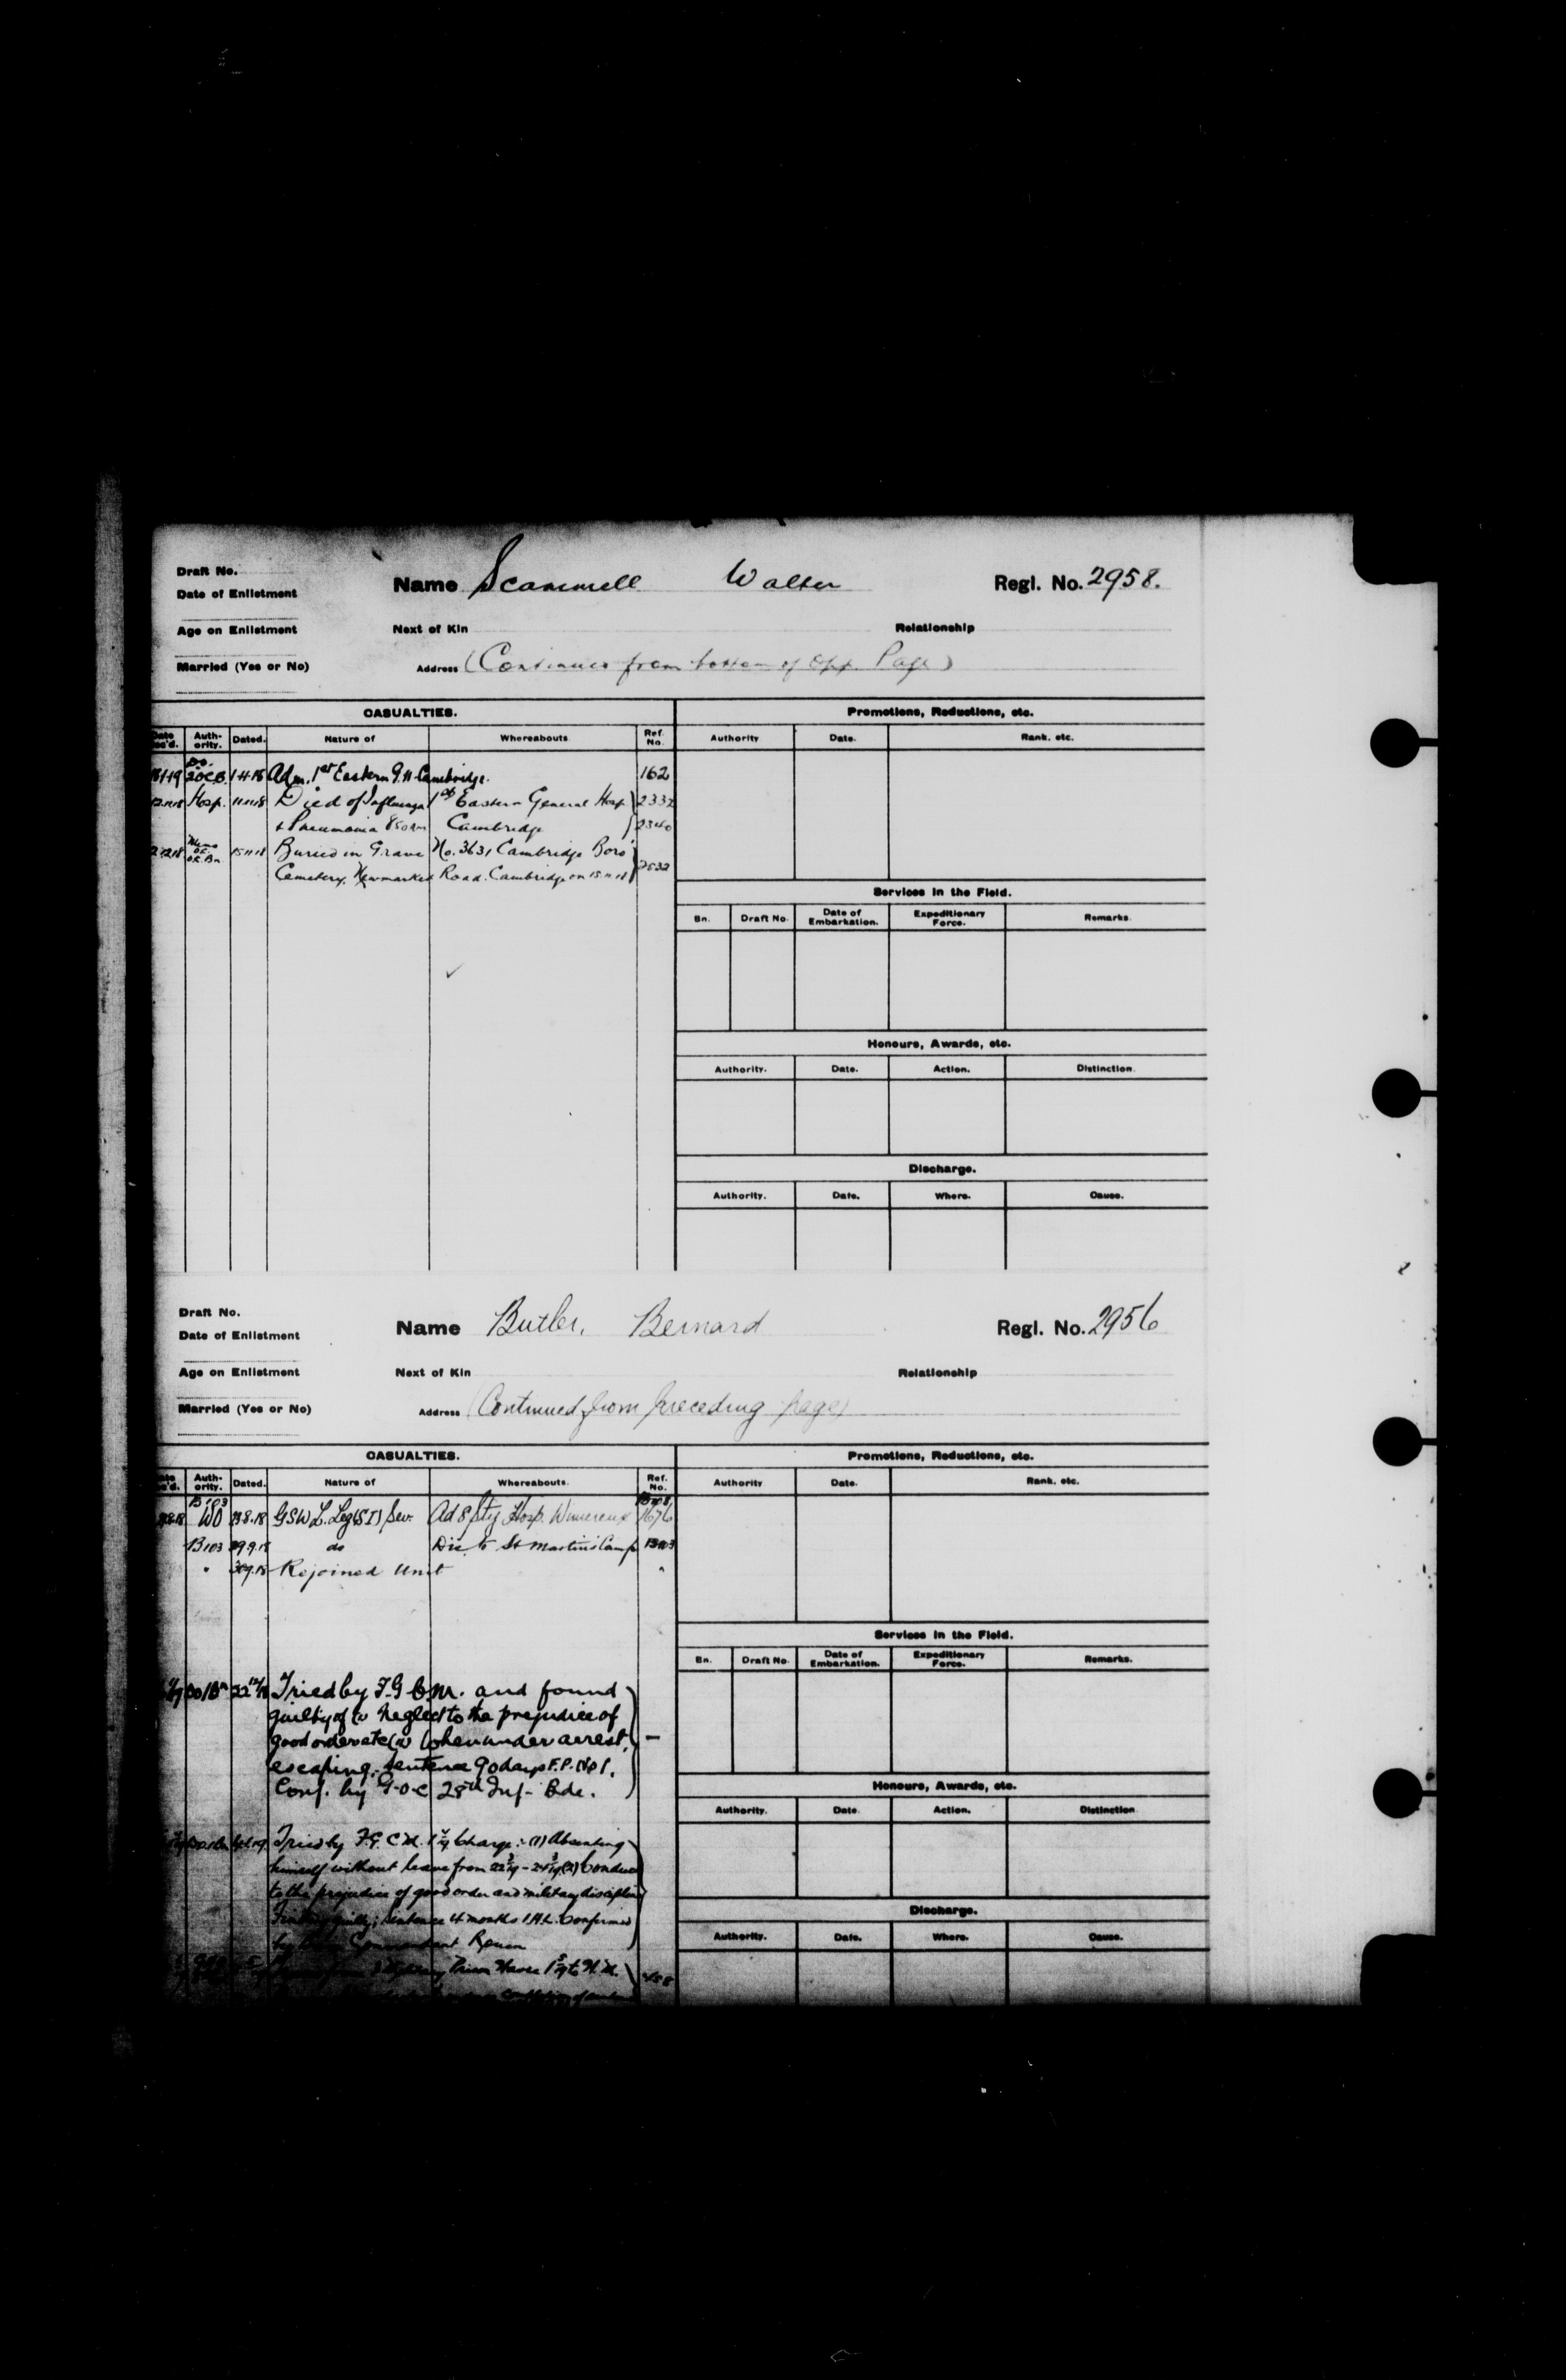 Draft No.
Name Scammell Walter Regl. No. 2958.
Date of Enlistment
Age on Enlistment Next of Kin Relationship
Married (Yes or No) Address (Continues from bottom of opp. Page)
CASUALTIES. Promotions, Reductions, etc.
Date Auth-ority. Dated. Nature of Whereabouts Ref. No. Authority Date. Rank, etc.
Adm. 1st Eastern G.H. Cambridge. 162
Hosp. 11.11.18 Died of Influenza 1st Eastern General Hosp. 2332
& Pneumonia 850am Cambridge 2340
15.11.18 Buried in Grave No. 3631 Cambridge Boro' 2532
Cemetery, Newmarket Road. Cambridge on 15.11.18
Services in the Field.
Bn. Draft No. Date of Embarkation. Expeditionary Force. Remarks.
Honours, Awards, etc.
Authority. Date. Action. Distinction.
Discharge.
Authority. Date. Where. Cause.
Draft No.
Name Butler, Bernard Regl. No. 2956
Date of Enlistment
Age on Enlistment Next of Kin Relationship
Married (Yes or No) Address (Continued from preceding page)
CASUALTIES. Promotions, Reductions, etc.
Auth-ority. Dated. Nature of Whereabouts. Ref. No. Authority Date. Rank, etc.
B103
WO GSW L. Leg (SI) Sev. Ad 8 Sty Hosp. Wimereux 1676
B103 29.9.18 do Dis to St Martins Camp B103
" Rejoined Unit "
Services in the Field.
Bn. Draft No. Date of Embarkation. Expeditionary Force. Remarks.
Tried by F.G.C.M. and found
guilty of (1) Neglect to the prejudice of
good order etc (2) When under arrest, —
escaping. Sentence 90 days F.P. No 1.
Conf. by G.O.C 28th Inf. Bde.
Honours, Awards, etc.
Authority. Date. Action. Distinction
Tried by F.G.C.M. Charge:- (1) Absenting
himself without leave from (2) Conduct
to the prejudice of good order and military discipline
guilty; Sentence 4 months I.H.L. Confirmed
by Rouen
Discharge.
Authority. Date. Where. Cause.
Prison Havre